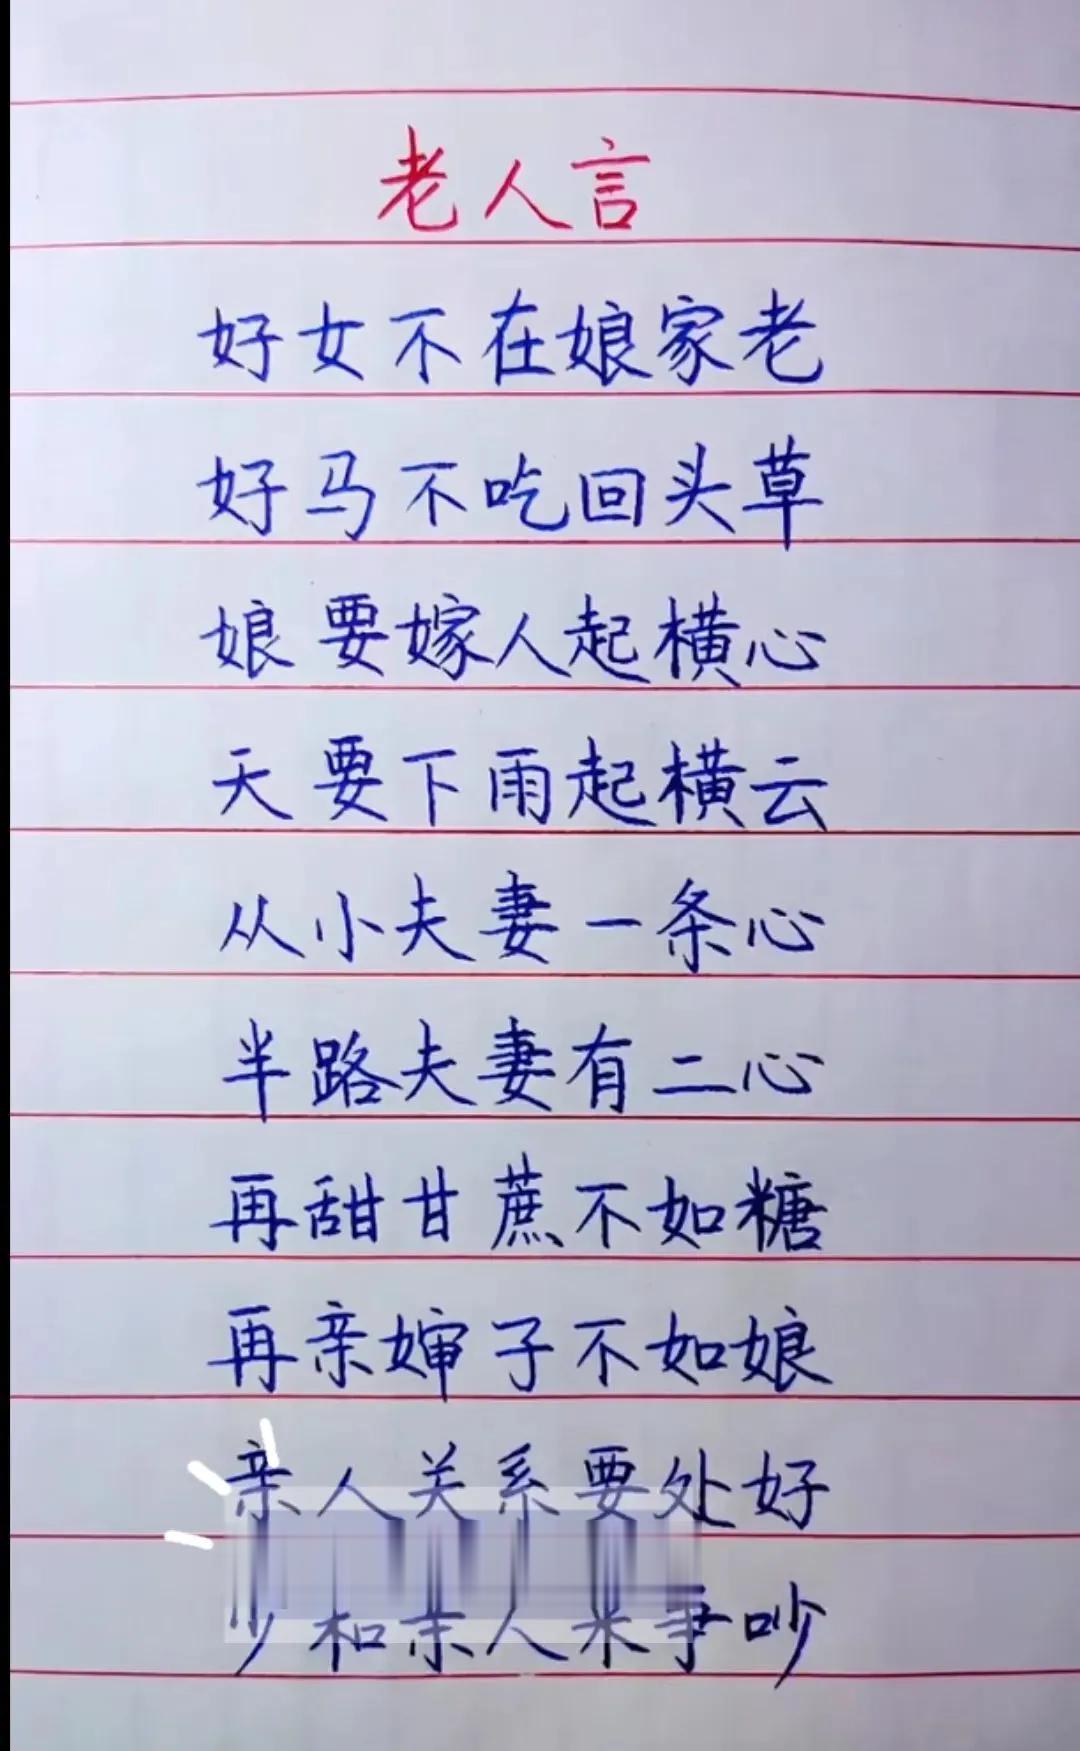 老人言
好女不在娘家老
好马不吃回头草
娘要嫁人起横心
天要下雨起横云
从小夫妻一条心
半路夫妻有二心
再甜甘蔗不如糖
再亲婶子不如娘
亲人关系要处好
少和亲人来争吵